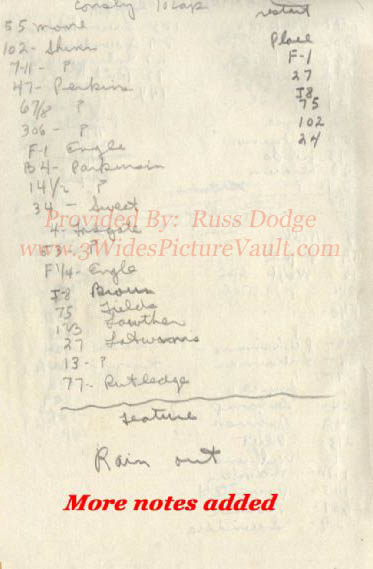 Consly 10 Lap
55 moore
102 - Shiver
7-11 - ?
47 - Perkins
67/8 ?
306 - ?
F-1 Engle
B4 - Parkinson
14 1/2 ?
34 - Sweet
4 -
?
F 1/4 - Engle
J-8 Brown
75 Fields
1 1/3 Lowther
27
13 - ?
77 - Rutledge
feature
Rain out
restart
Place
F-1
27
J8
75
102
24
Provided By: Russ Dodge
www.3WidesPictureVault.com
More notes added